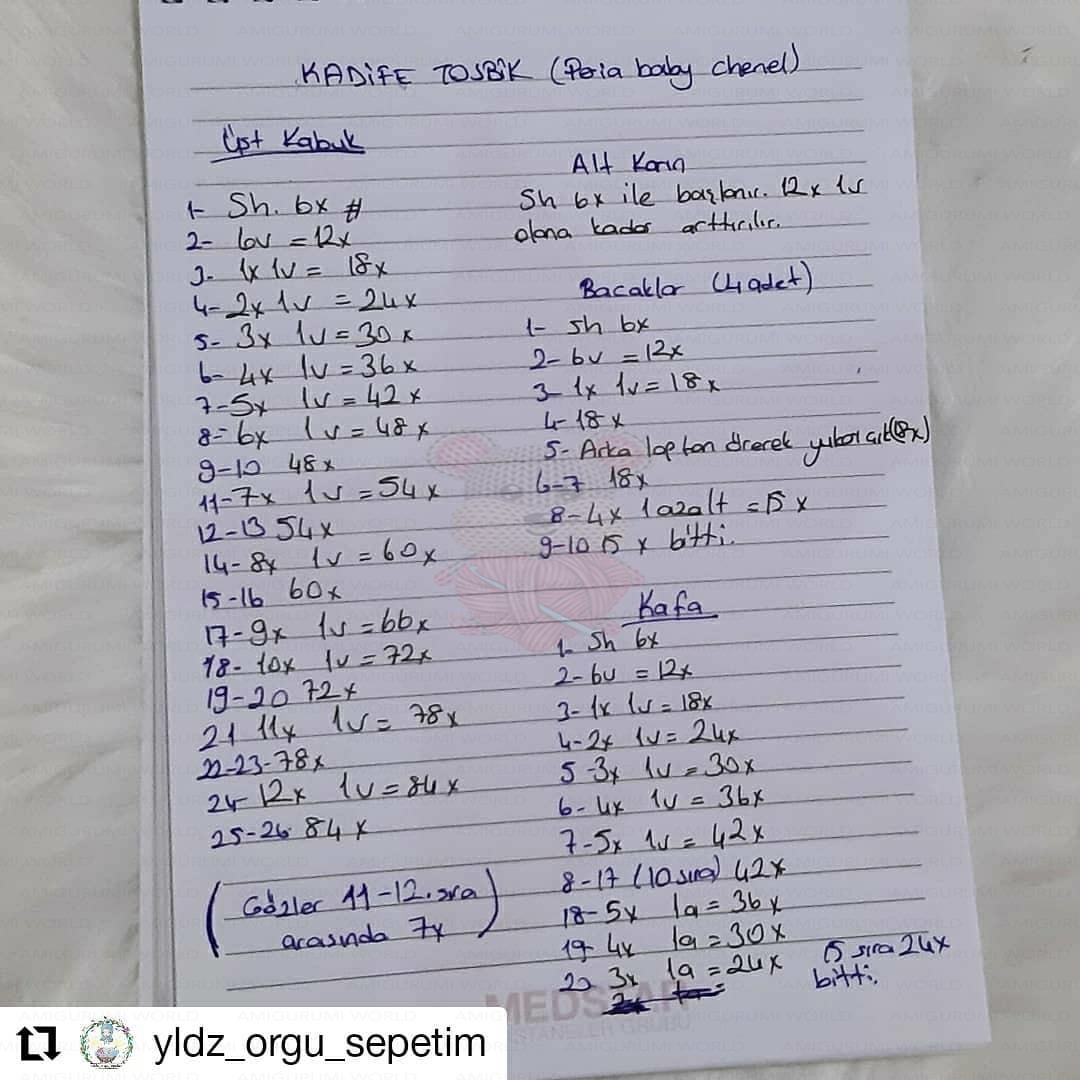 KADİFE TOSBİK (Peria baby chenel)
Üst Kabuk
1- Sh. 6x #
2- 6v = 12x
3- 1x 1v = 18x
4- 2x 1v = 24x
5- 3x 1v = 30x
6- 4x 1v = 36x
7- 5x 1v = 42x
8- 6x 1v = 48x
9-10 48x
11- 7x 1v = 54x
12-13 54x
14- 8x 1v = 60x
15-16 60x
17- 9x 1v = 66x
18- 10x 1v = 72x
19-20 72x
21 11x 1v = 78x
22-23-78x
24- 12x 1v = 84x
25-26 84x
(Gözler 11-12. sıra
arasında 7x)
Alt Karın
Sh 6x ile başlanır. 12x 1v
olana kadar arttırılır.
Bacaklar (4 adet)
1- Sh 6x
2- 6v = 12x
3- 1x 1v = 18x
4- 18x
5- Arka loptan örerek yukarı çık (18x)
6-7 18x
8- 4x 1 azalt = 15x
9-10 15x bitti.
Kafa
1- Sh 6x
2- 6v = 12x
3- 1x 1v = 18x
4- 2x 1v = 24x
5- 3x 1v = 30x
6- 4x 1v = 36x
7- 5x 1v = 42x
8-17 (10 sıra) 42x
18- 5x 1a = 36x
19- 4x 1a = 30x
20 3x 1a = 24x
15 sıra 24x
bitti.
MEDSTAR
yldz_orgu_sepetim
AMIGURUMI WORLD